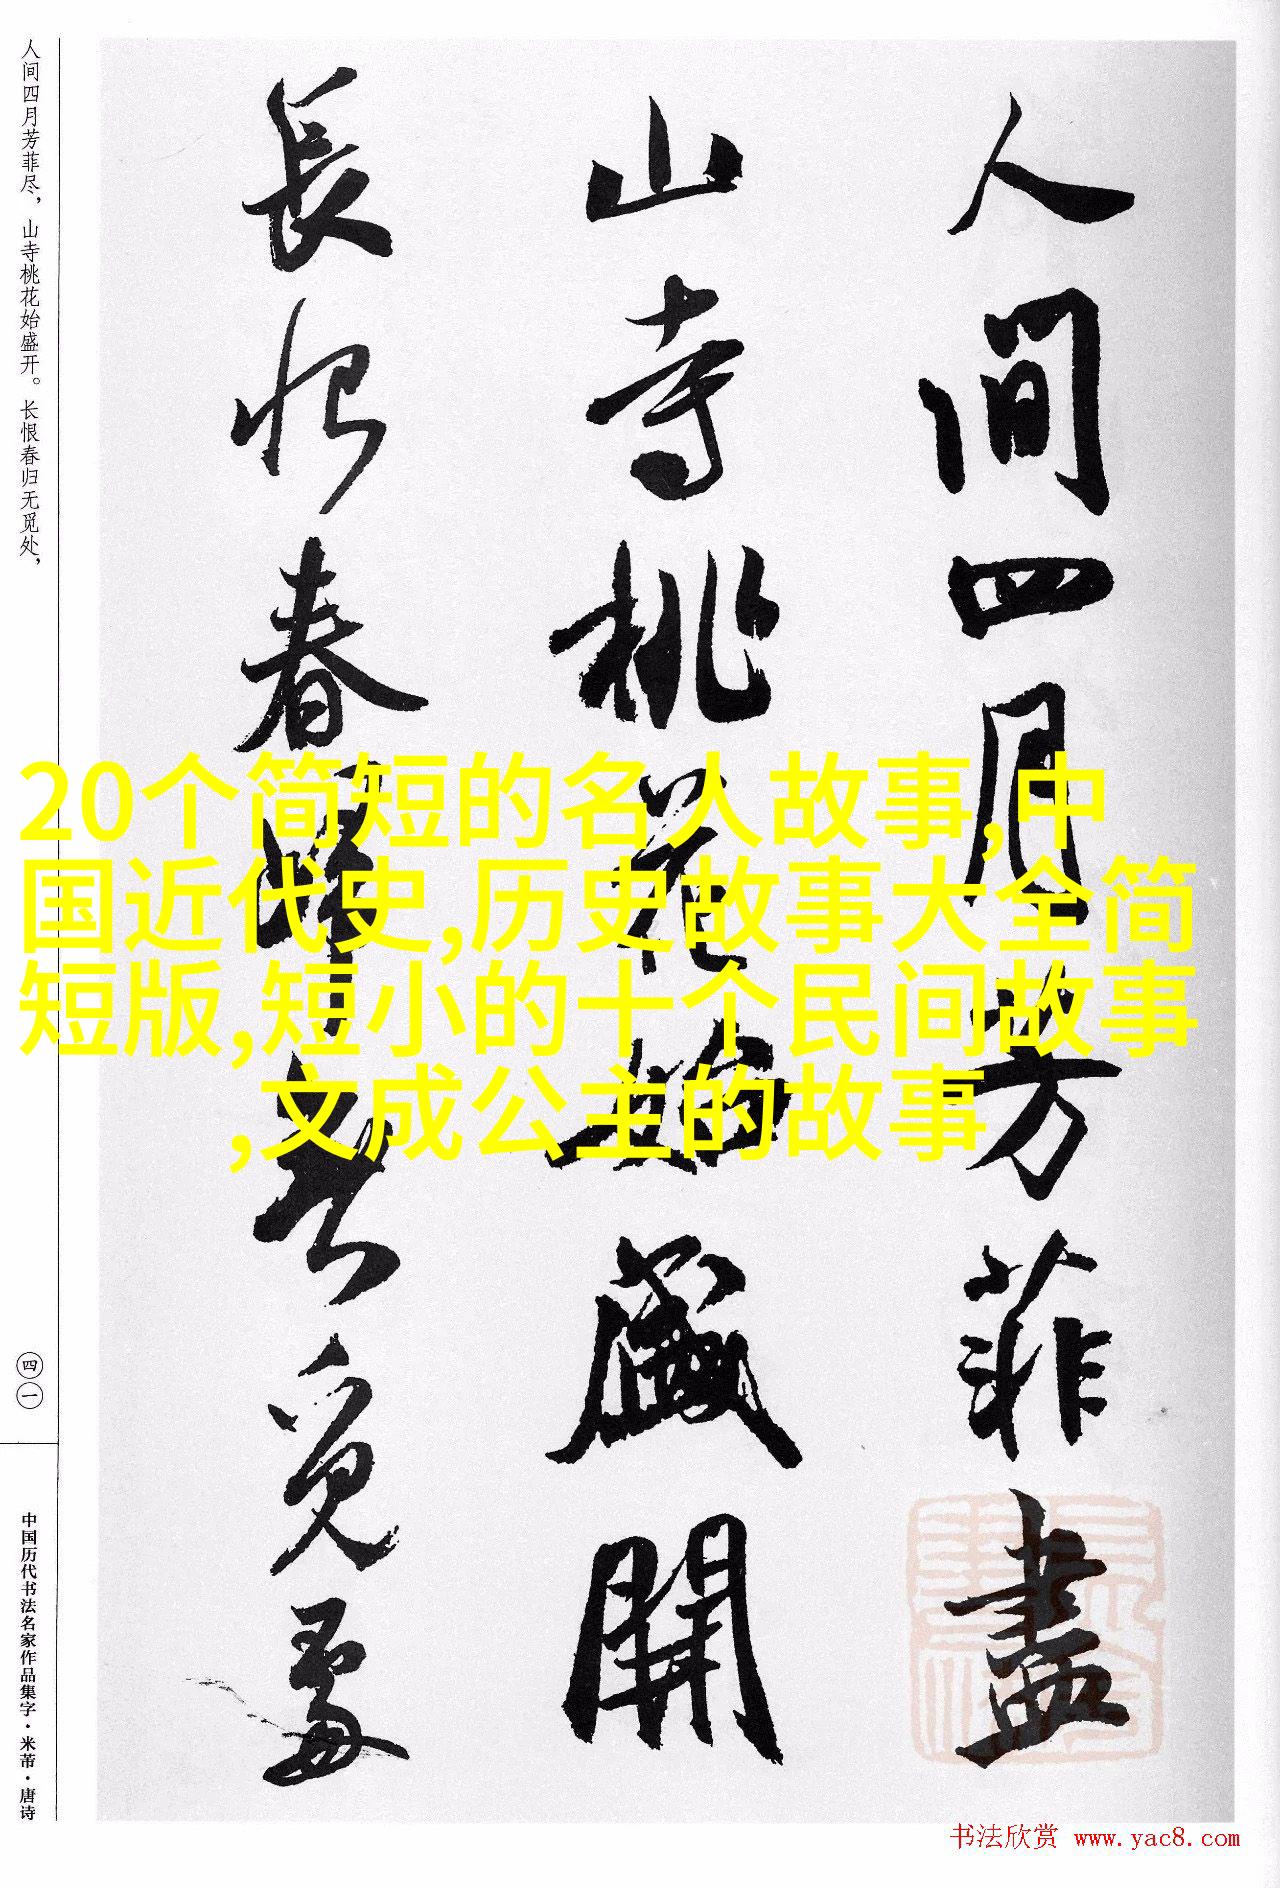 人间四月芳菲尽，山寺桃花始盛开。长恨春归无觅处，
四一
中国历代书法名家作品集字·米芾·唐诗
人間四月芳菲盡
山寺桃花始盛開
長恨春歸無覓處
20个简短的名人故事,中
国近代史,历史故事大全简
短版,短小的十个民间故事
,文成公主的故事
书法欣赏 www.yac8.com